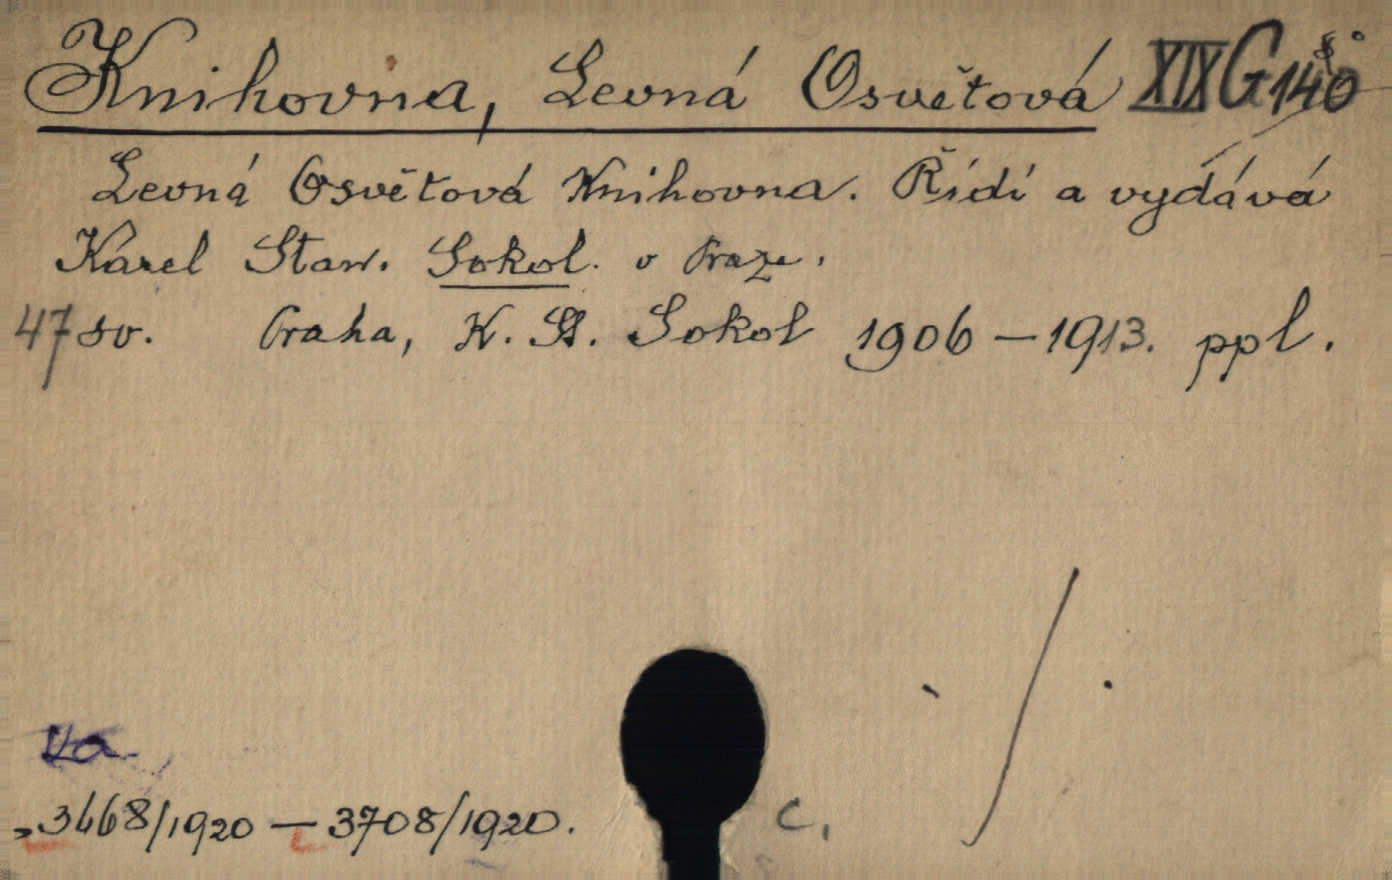 Knihovna, Levná Osvětová XIX G 140
Levná Osvětová Knihovna. Řídí a vydává
Karel Stan. Sokol. v Praze.
47 sv. Praha, K. St. Sokol 1906 – 1913. ppl.
3468/1920 – 3708/1920.
c.